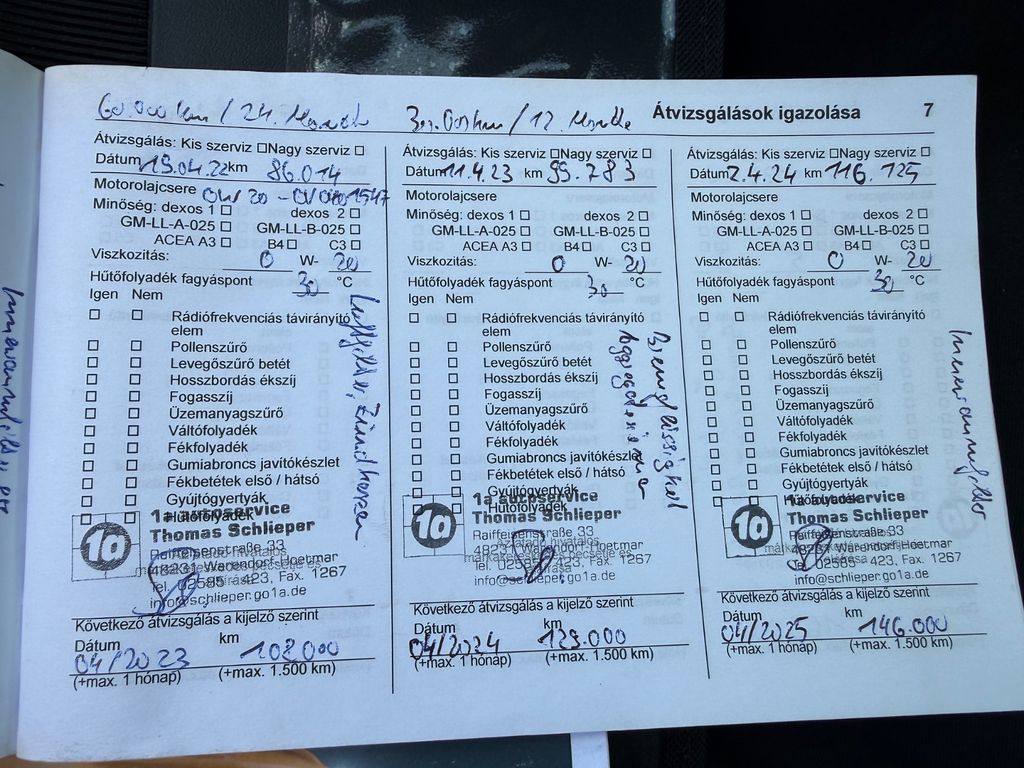 60.000 km / 24. Monate
/ 12. Monate
Átvizsgálások igazolása 7
Átvizsgálás: Kis szerviz □ Nagy szerviz □
Dátum 19.04.22 km 86.014
Motorolajcsere
Minőség: dexos 1 □ dexos 2 □
GM-LL-A-025 □ GM-LL-B-025 □
ACEA A3 □ B4 □ C3 □
Viszkozitás: 0 W- 20
Hűtőfolyadék fagyáspont 30 °C
Igen Nem
□ □ Rádiófrekvenciás távirányító
elem
□ □ Pollenszűrő
□ □ Levegőszűrő betét
□ □ Hosszbordás ékszíj
□ □ Fogasszíj
□ □ Üzemanyagszűrő
□ □ Váltófolyadék
□ □ Fékfolyadék
□ □ Gumiabroncs javítókészlet
□ □ Fékbetétek első / hátsó
□ □ Gyújtógyertyák
□ □ Hűtőfolyadék
Luftfilter, Zündkerzen
1a autoservice
Thomas Schlieper
Raiffeisenstraße 33
48231 Warendorf-Hoetmar
Tel. 02585 - 423, Fax. 1267
info@schlieper.go1a.de
Következő átvizsgálás a kijelző szerint
Dátum km
04/2023 108.000
(+max. 1 hónap) (+max. 1.500 km)
Átvizsgálás: Kis szerviz □ Nagy szerviz □
Dátum 11.4.23 km 99.783
Motorolajcsere
Minőség: dexos 1 □ dexos 2 □
GM-LL-A-025 □ GM-LL-B-025 □
ACEA A3 □ B4 □ C3 □
Viszkozitás: 0 W- 20
Hűtőfolyadék fagyáspont 30 °C
Igen Nem
□ □ Rádiófrekvenciás távirányító
elem
□ □ Pollenszűrő
□ □ Levegőszűrő betét
□ □ Hosszbordás ékszíj
□ □ Fogasszíj
□ □ Üzemanyagszűrő
□ □ Váltófolyadék
□ □ Fékfolyadék
□ □ Gumiabroncs javítókészlet
□ □ Fékbetétek első / hátsó
□ □ Gyújtógyertyák
□ □ Hűtőfolyadék
Bremsflüssigkeit
1a autoservice
Thomas Schlieper
Raiffeisenstraße 33
48231 Warendorf-Hoetmar
Tel. 02585 - 423, Fax. 1267
info@schlieper.go1a.de
Következő átvizsgálás a kijelző szerint
Dátum km
04/2024 129.000
(+max. 1 hónap) (+max. 1.500 km)
Átvizsgálás: Kis szerviz □ Nagy szerviz □
Dátum 2.4.24 km 116.125
Motorolajcsere
Minőség: dexos 1 □ dexos 2 □
GM-LL-A-025 □ GM-LL-B-025 □
ACEA A3 □ B4 □ C3 □
Viszkozitás: 0 W- 20
Hűtőfolyadék fagyáspont 30 °C
Igen Nem
□ □ Rádiófrekvenciás távirányító
elem
□ □ Pollenszűrő
□ □ Levegőszűrő betét
□ □ Hosszbordás ékszíj
□ □ Fogasszíj
□ □ Üzemanyagszűrő
□ □ Váltófolyadék
□ □ Fékfolyadék
□ □ Gumiabroncs javítókészlet
□ □ Fékbetétek első / hátsó
□ □ Gyújtógyertyák
□ □ Hűtőfolyadék
Innenraumfilter
1a autoservice
Thomas Schlieper
Raiffeisenstraße 33
48231 Warendorf-Hoetmar
Tel. 02585 - 423, Fax. 1267
info@schlieper.go1a.de
Következő átvizsgálás a kijelző szerint
Dátum km
04/2025 146.000
(+max. 1 hónap) (+max. 1.500 km)